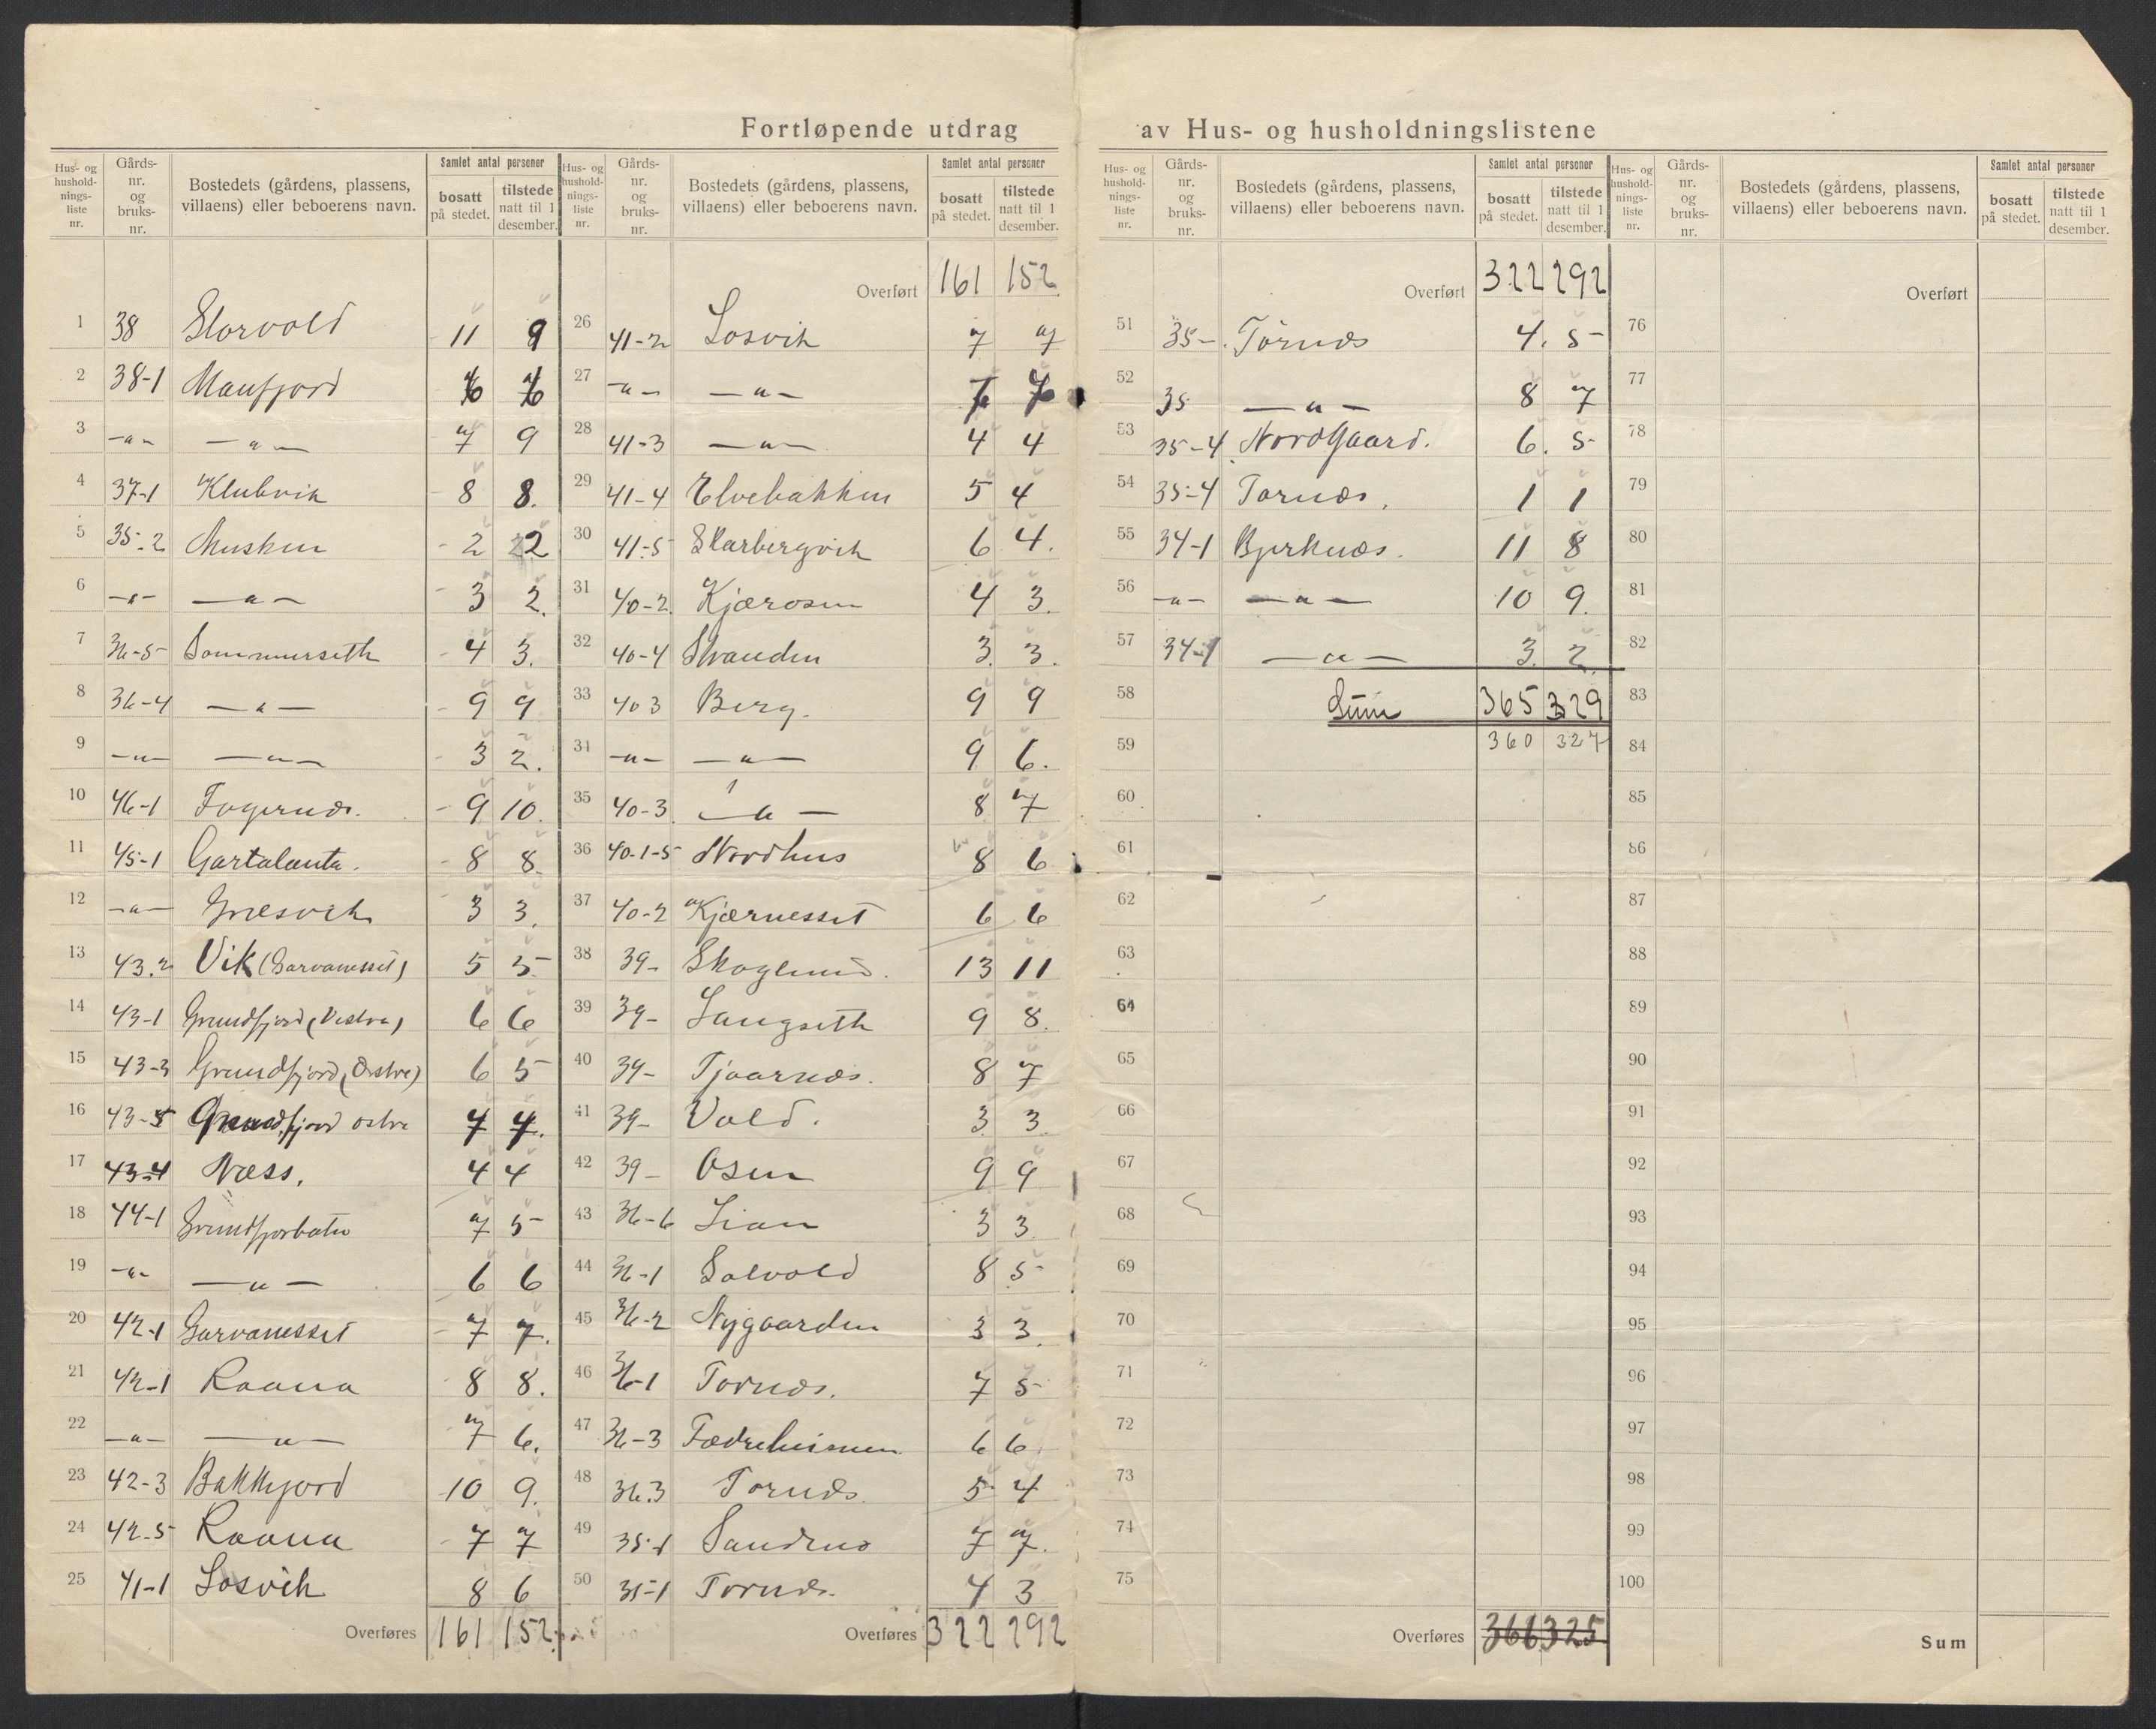 Fortløpende utdrag av Hus- og husholdningslistene
Hus- og hushold-nings-liste nr. Gårds-nr. og bruks-nr. Bostedets (gårdens, plassens, villaens) eller beboerens navn. Samlet antal personer bosatt på stedet. tilstede natt til 1 desember.
1 38 Storvold 11 9
2 38-1 Manfjord 6 6
3 -"- -"- 7 9
4 37-1 Klubvik 8 8.
5 35-2 Musken 2 2
6 -"- -"- 3 2.
7 36-5 Sommerseth 4 3.
8 36-4 -"- 9 9
9 -"- -"- 3 2.
10 46-1 Fagernes. 9 10.
11 45-1 Gartalanta. 8 8.
12 -"- Græsvik 3 3.
13 43.2 Vik (Garvanesset) 5 5.
14 43-1 Grundfjord (Vestre) 6 6
15 43-3 Grundfjord (Østre) 6 5
16 43-5 Grundfjord østre
17 43-4 Næss. 4 4
18 44-1 Grundfjorbotn 7 5
19 -"- -"- 6 6
20 42-1 Garvanesset 7 7.
21 42-1 Raana 8 8.
22 -"- -"- 7 6.
23 42-3 Bakkejord 10 9.
24 42-5 Raana 7 7
25 41-1 Losvik 8 6
Overføres 161 152
Hus- og hushold-nings-liste nr. Gårds-nr. og bruks-nr. Bostedets (gårdens, plassens, villaens) eller beboerens navn. Samlet antal personer bosatt på stedet. tilstede natt til 1 desember.
Overført 161 152
26 41-2 Losvik 7 7
27 -"- -"-
28 41-3 -"- 4 4
29 41-4 Elvebakken 5 4
30 41-5 Skarbergvik 6 4.
31 40-2 Kjærosen 4 3.
32 40-4 Stranden 3. 3.
33 40 3 Berg. 9 9
34 -"- -"- 9 6.
35 40-3 -"- 8 7
36 40-1-5 Nordhus 8 6
37 40-2 Kjærnesset 6 6
38 39- Skoglund. 13 11
39 39- Langseth 9 8.
40 39- Tjaarnes. 8 7
41 39- Vold. 3 3
42 39- Osen 9 9
43 36-6 Lian 3 3
44 36-1 Solvold 8 5
45 36-2 Nygaarden 3 3.
46 36-1 Tornes. 7 5
47 36-3 Fædreheimen 6 6.
48 36.3 Tornes. 5 4
49 35-1 Sandnes 7 7.
50 35-1 Tornes. 4 3
Overføres 322 292
Hus- og hushold-nings-liste nr. Gårds-nr. og bruks-nr. Bostedets (gårdens, plassens, villaens) eller beboerens navn. Samlet antal personer bosatt på stedet. tilstede natt til 1 desember.
Overført 322 292
51 35- Tornes 4. 5
52 35 -"- 8 7
53 35-4 Nordgaard. 6. 5
54 35-4 Tornes. 1 1
55 34-1 Bjerknes. 11 8
56 -"- -"- 10 9.
57 34-1 -"- 3 2
58 Sum 365 329
59 360 327
60
61
62
63
64
65
66
67
68
69
70
71
72
73
74
75
Overføres 366 325
Hus- og hushold-nings-liste nr. Gårds-nr. og bruks-nr. Bostedets (gårdens, plassens, villaens) eller beboerens navn. Samlet antal personer bosatt på stedet. tilstede natt til 1 desember.
Overført
76
77
78
79
80
81
82
83
84
85
86
87
88
89
90
91
92
93
94
95
96
97
98
99
100
Sum